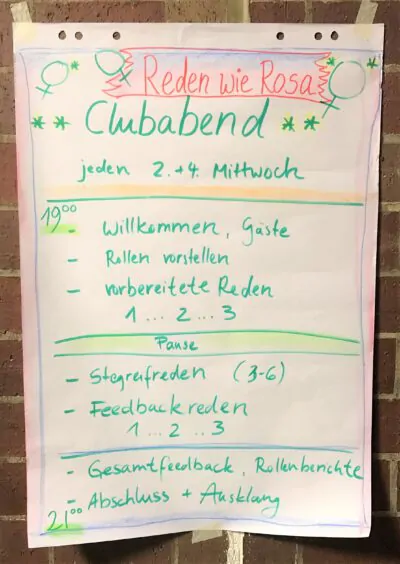 Reden wie Rosa
** Clubabend **
jeden 2. + 4. Mittwoch
19⁰⁰
- Willkommen, Gäste
- Rollen vorstellen
- vorbereitete Reden
1 ... 2 ... 3
Pause
- Stegreifreden (3-6)
- Feedbackreden
1 ... 2 .. 3
- Gesamtfeedback, Rollenberichte
- Abschluss + Ausklang
21⁰⁰